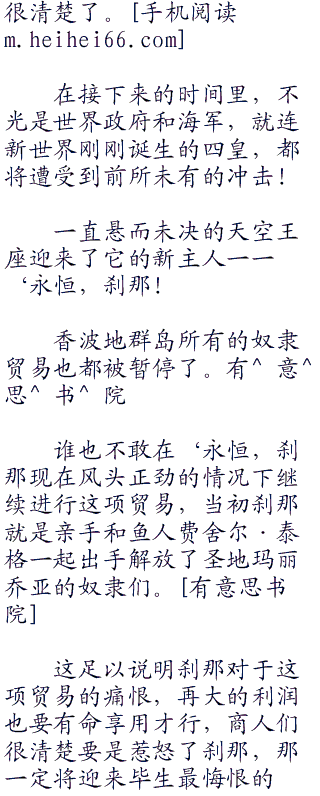 很清楚了。[手机阅读
m.heihei66.com]
在接下来的时间里，不
光是世界政府和海军，就连
新世界刚刚诞生的四皇，都
将遭受到前所未有的冲击！
一直悬而未决的天空王
座迎来了它的新主人一一
‘永恒，刹那！
香波地群岛所有的奴隶
贸易也都被暂停了。有^ 意^
思^ 书^ 院
谁也不敢在‘永恒，刹
那现在风头正劲的情况下继
续进行这项贸易，当初刹那
就是亲手和鱼人费舍尔·泰
格一起出手解放了圣地玛丽
乔亚的奴隶们。[有意思书
院]
这足以说明刹那对于这
项贸易的痛恨，再大的利润
也要有命享用才行，商人们
很清楚要是惹怒了刹那，那
一定将迎来毕生最悔恨的